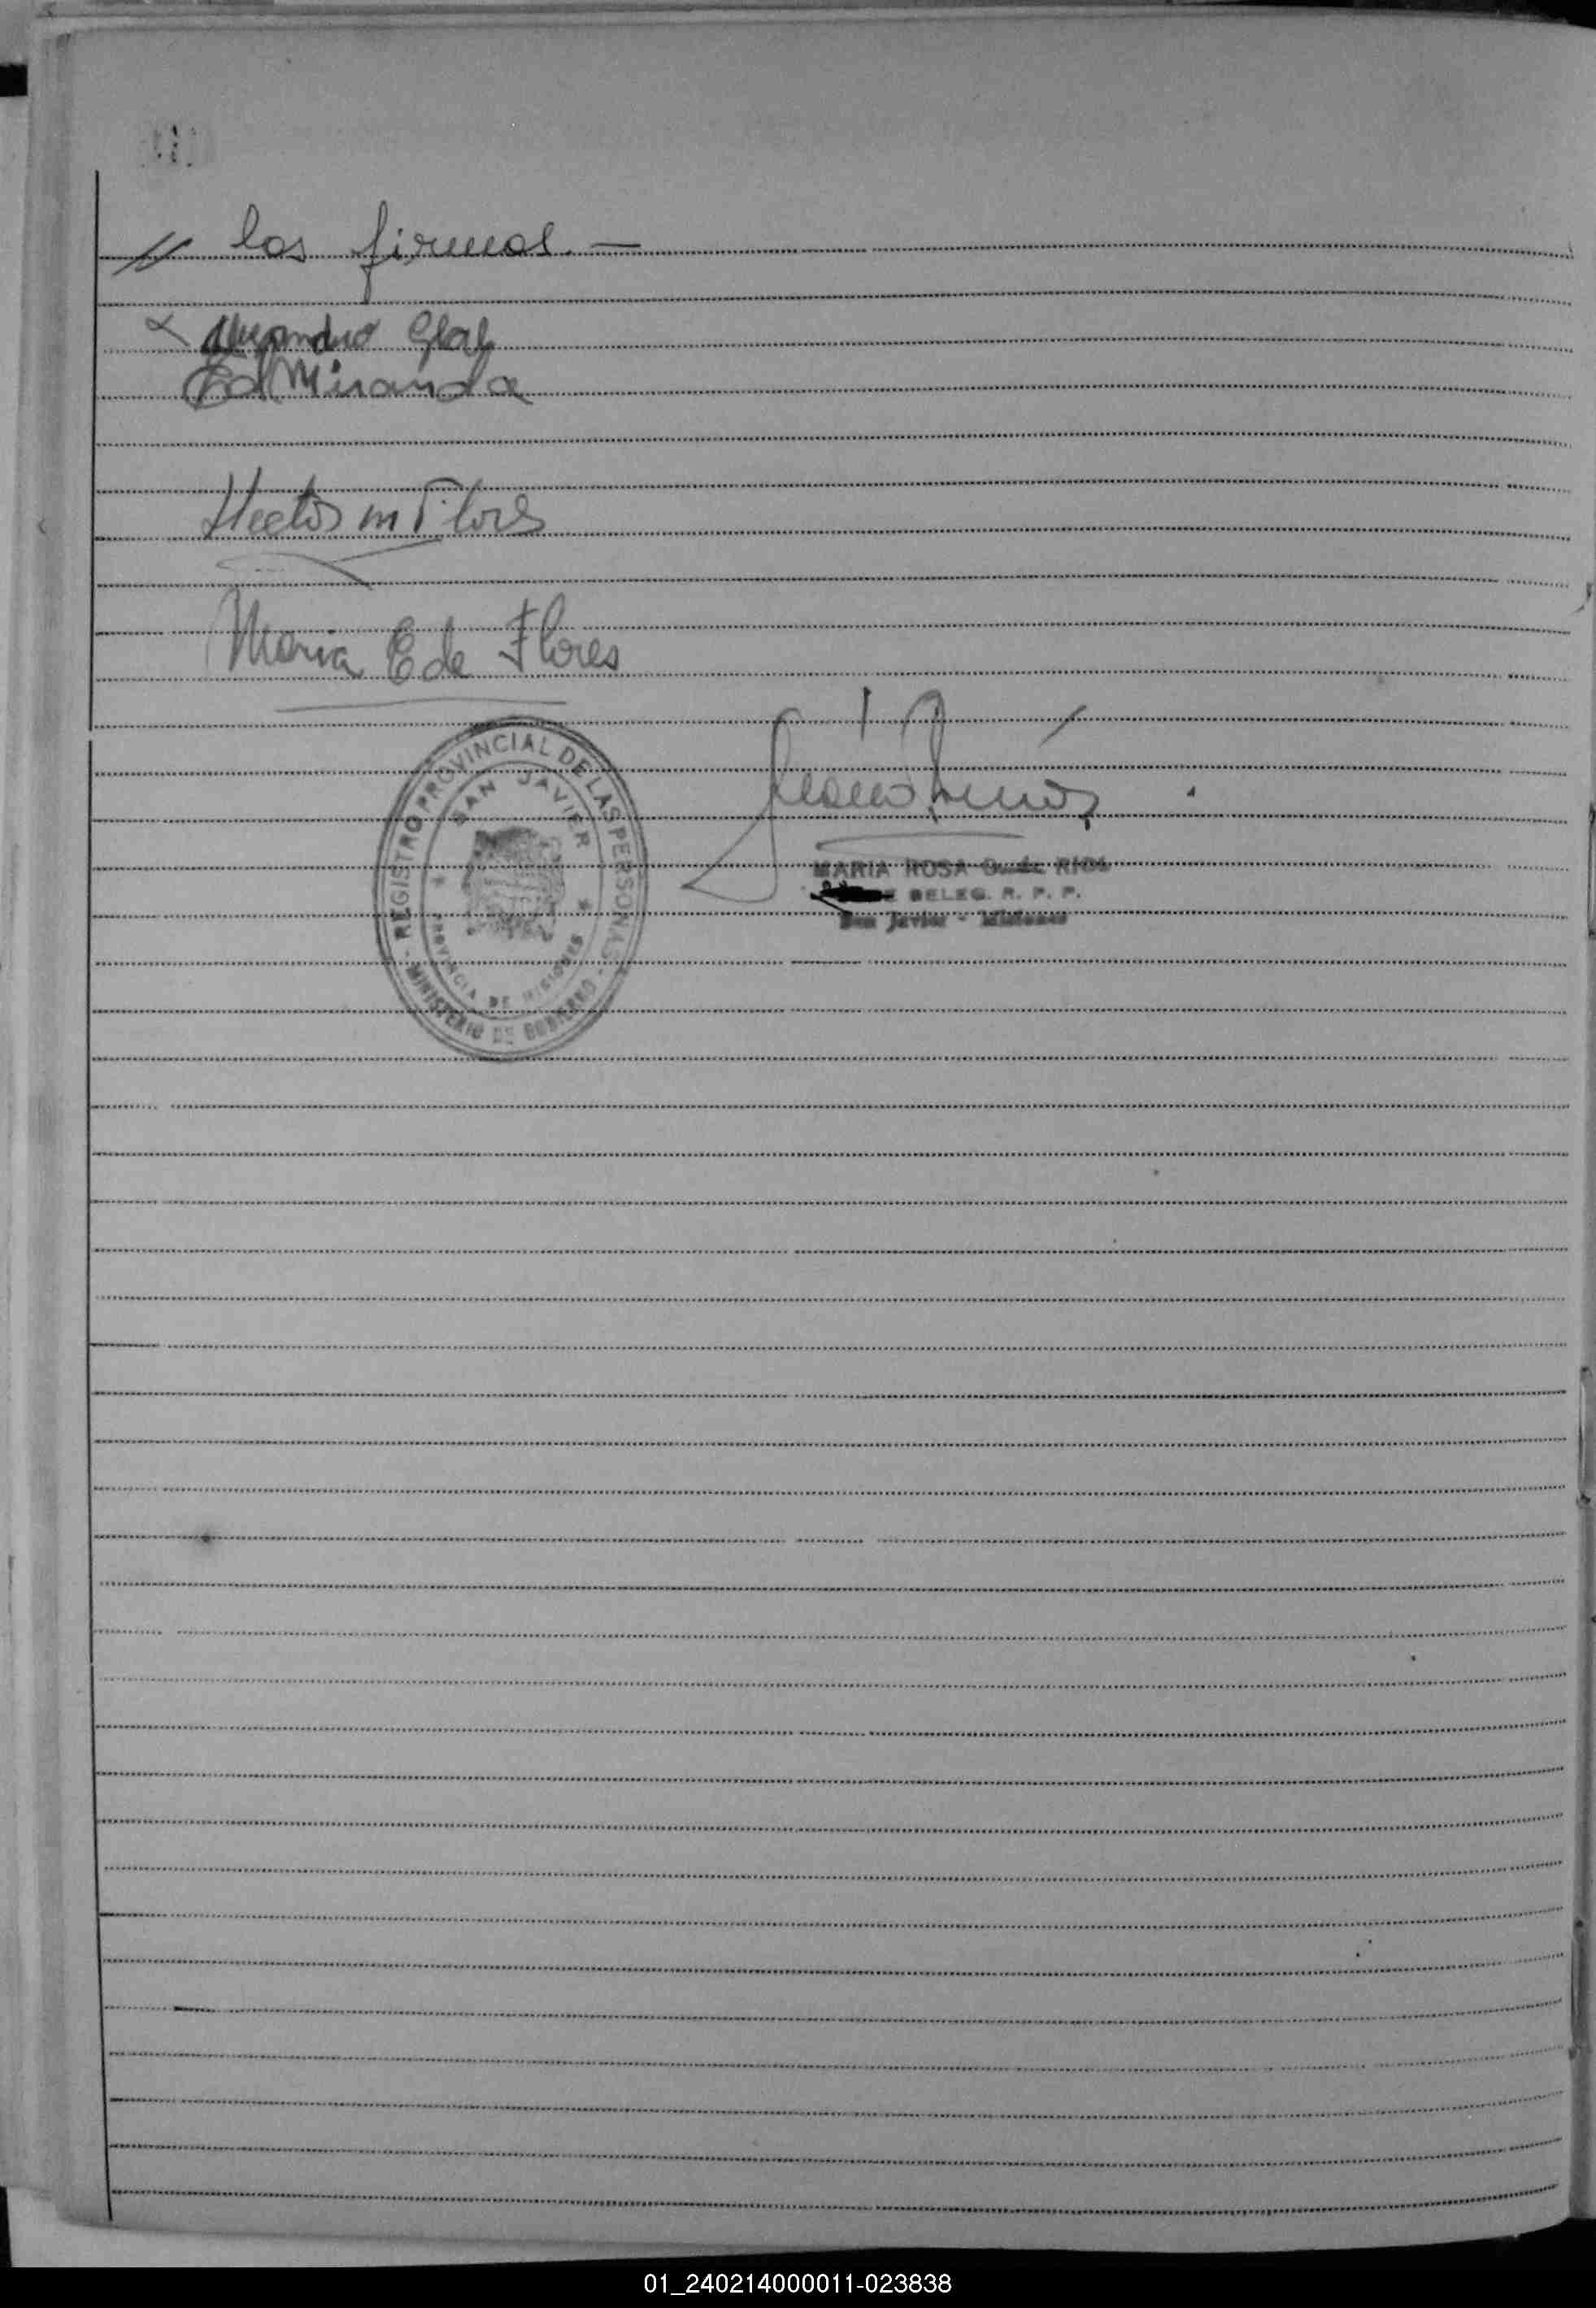 // las firmas.—
Alejandro
Miranda
Hector m Flores
Maria E de Flores
REGISTRO PROVINCIAL DE LAS PERSONAS
SAN JAVIER
PROVINCIA DE MISIONES
- MINISTERIO DE GOBIERNO -
MARIA ROSA de RIOS
DELEG. R. P. P.
San Javier - Misiones
01_240214000011-023838